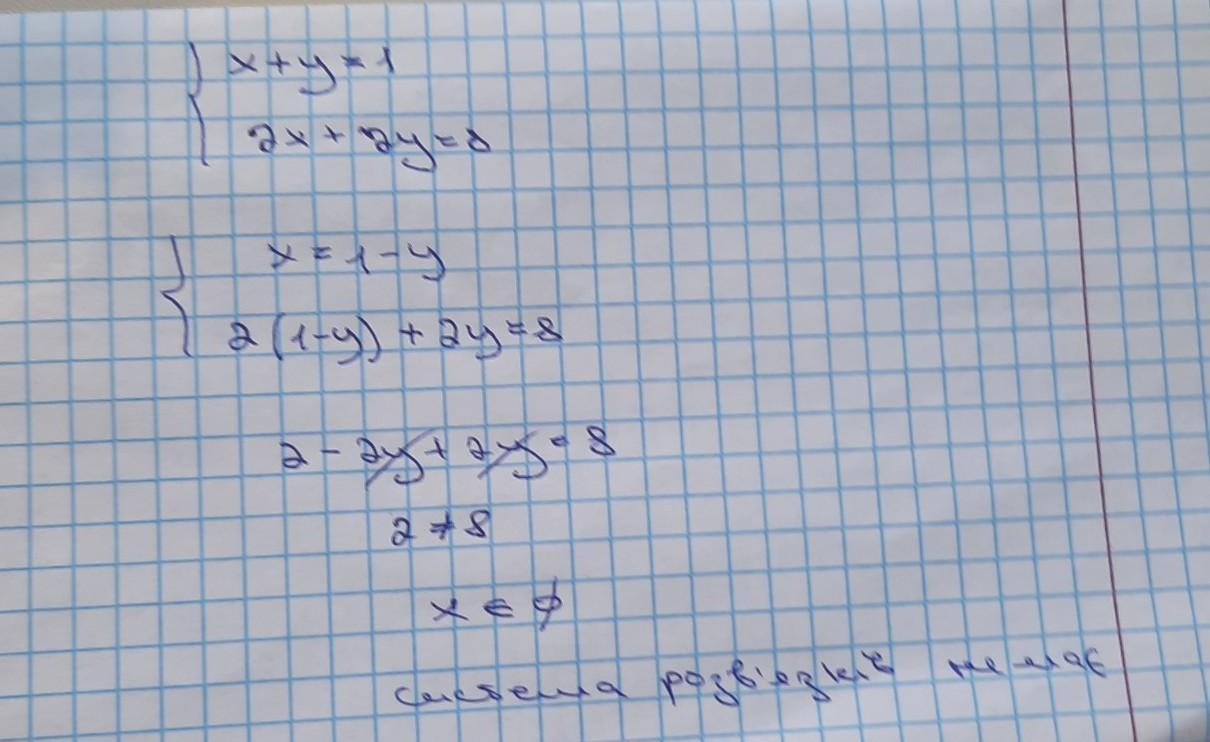 x + y = 1
2x + 2y = 8
x = 1 - y
2(1-y) + 2y = 8
2 - 2y + 2y = 8
2 ≠ 8
x ∈ ∅
система розв'язків не має